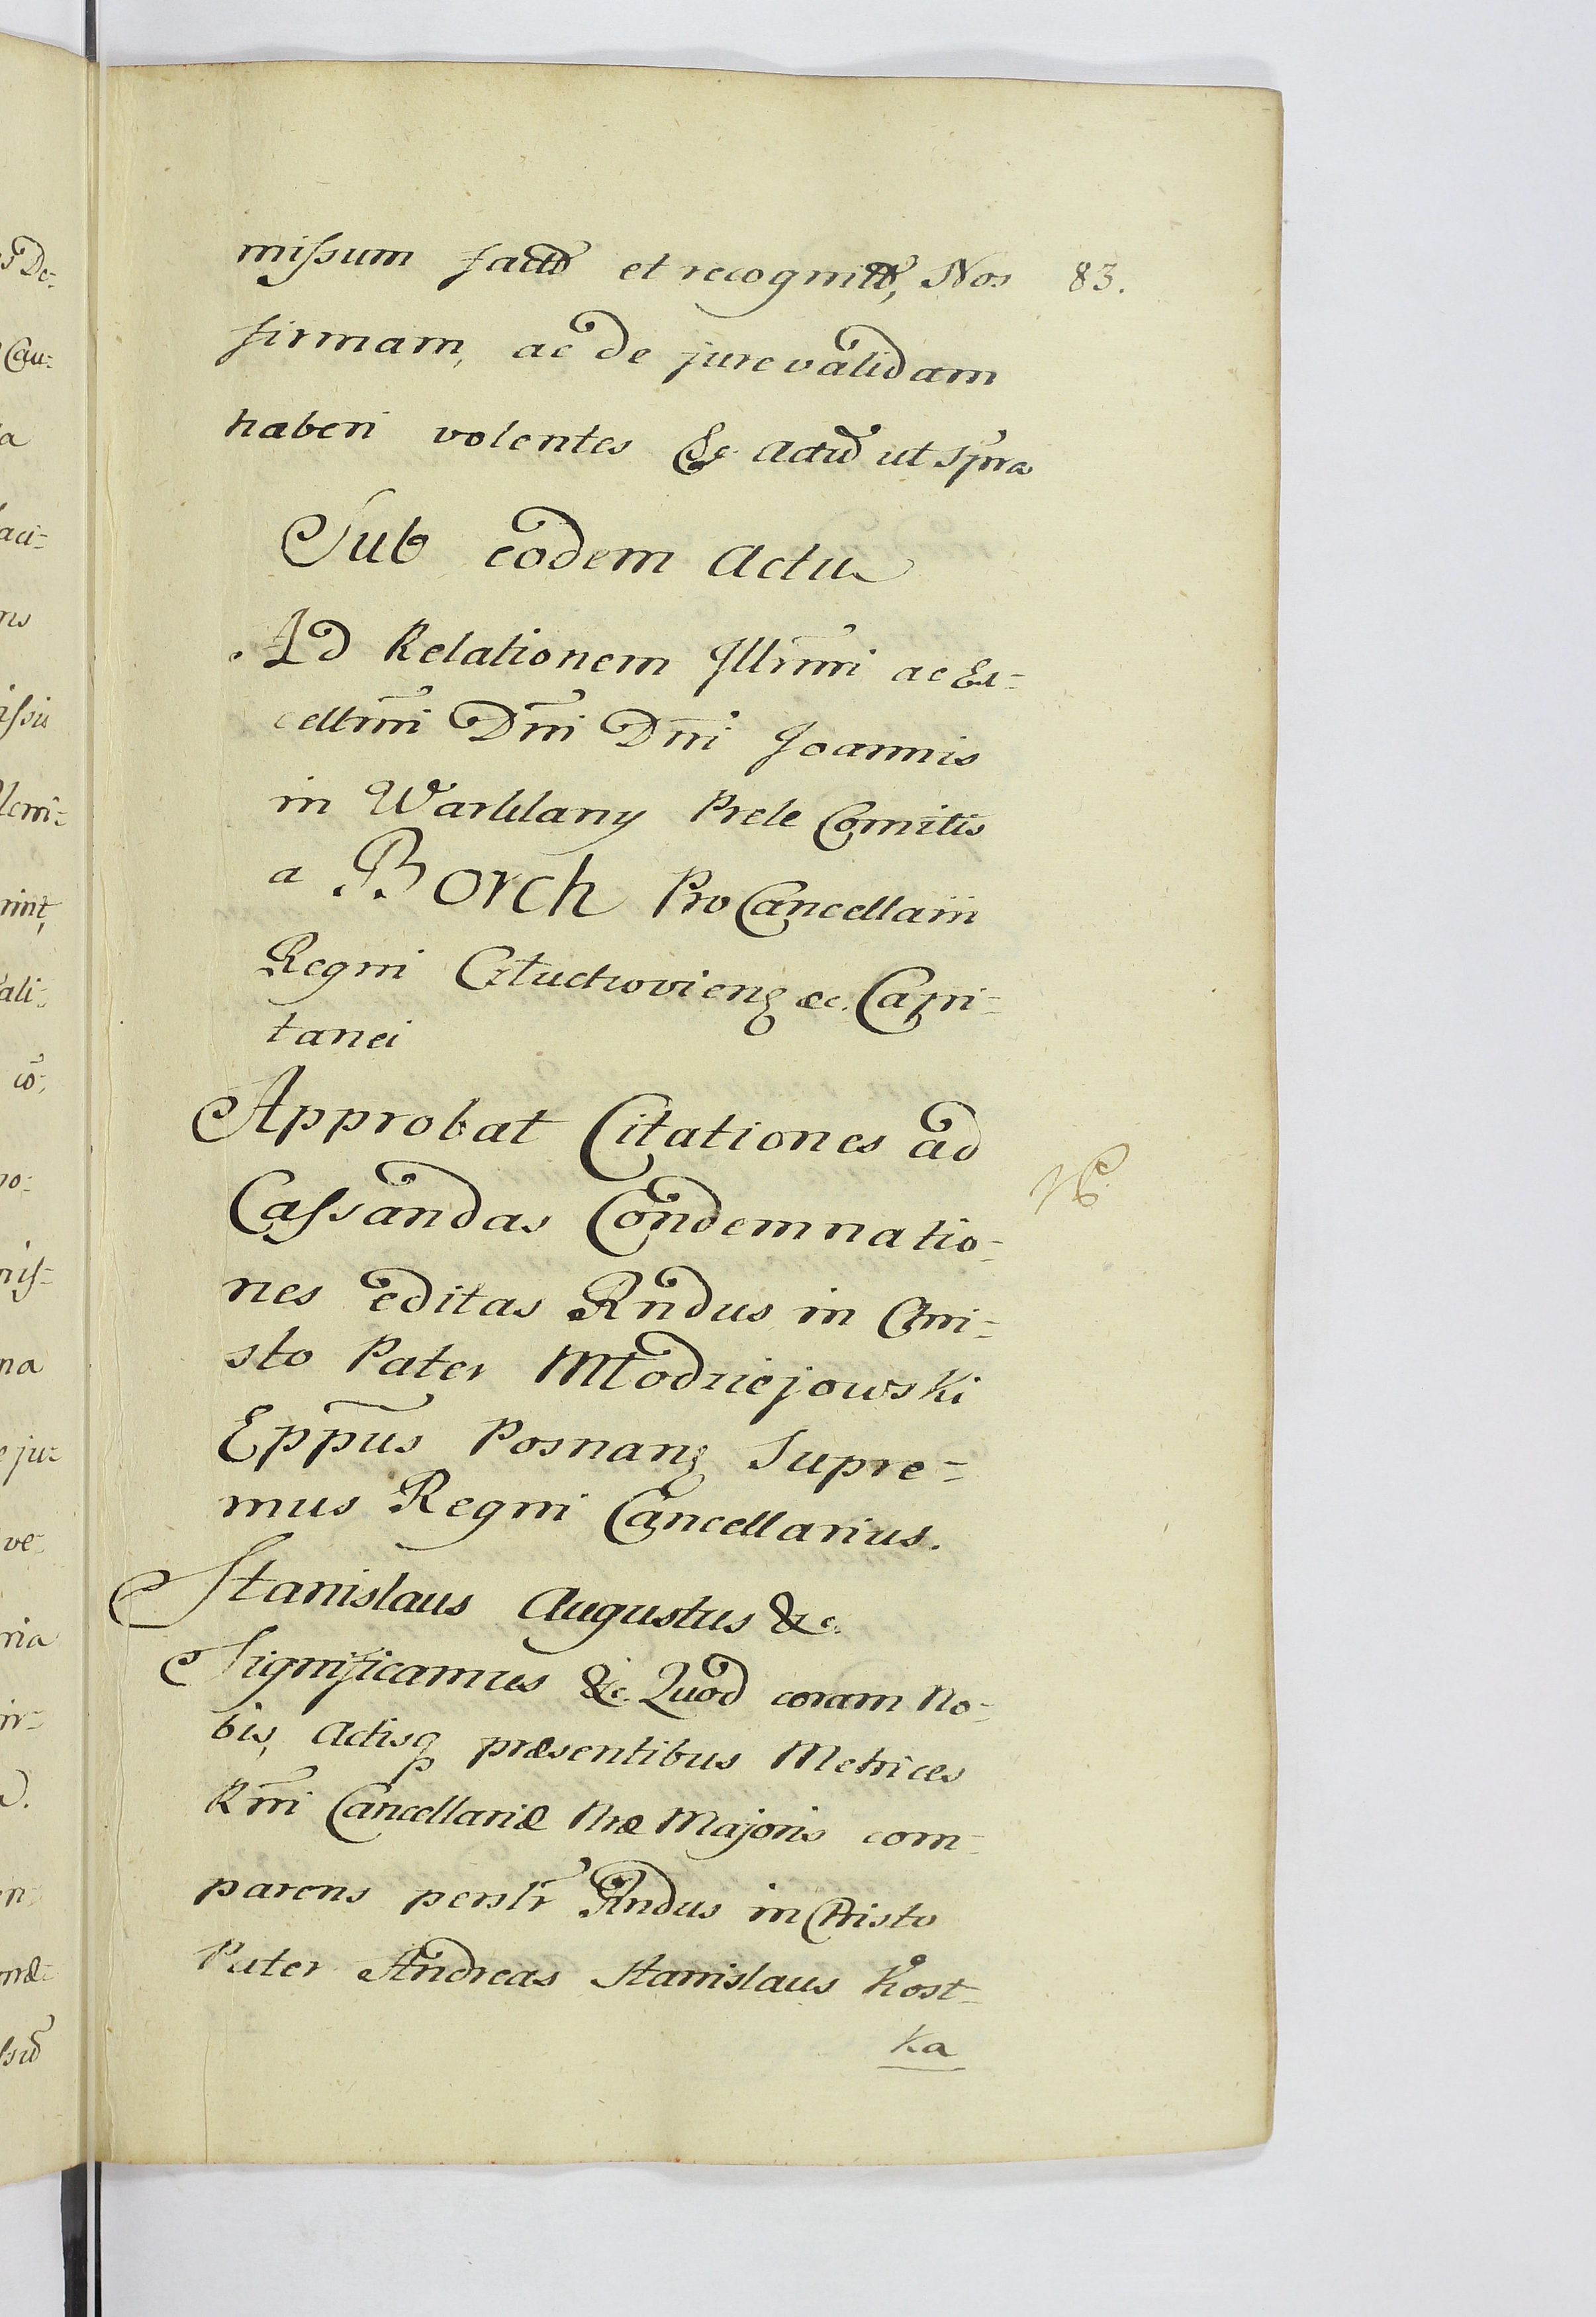 missum factũ et recognitũ, Nos 83.
firmam, ac de jure validam
haberi volentes &c Actũ ut spra
Sub eodem Actu
Ad Relationem Illrmi ac Ex=
cellmi Dni Dni Joannis
in Warklany Prele Comitis
a Borch ProCancellarii
Regni &c. Capi=
tanei
Approbat Citationes ad
Cassandas Condemnatio=
nes editas Rndus in Chri=
sto Pater Młodziejowski
Eppus Posnanẽ Supre=
mus Regni Cancellarius.
Stanislaus Augustus &c.
Significamus &c. Quod coram No=
bis, Actisq̃ præsentibus Metrices
Rni Cancellariæ Nræ Majoris com=
parens persltr Rndus in Christo
Pater Andreas Stanislaus Kost=
ka